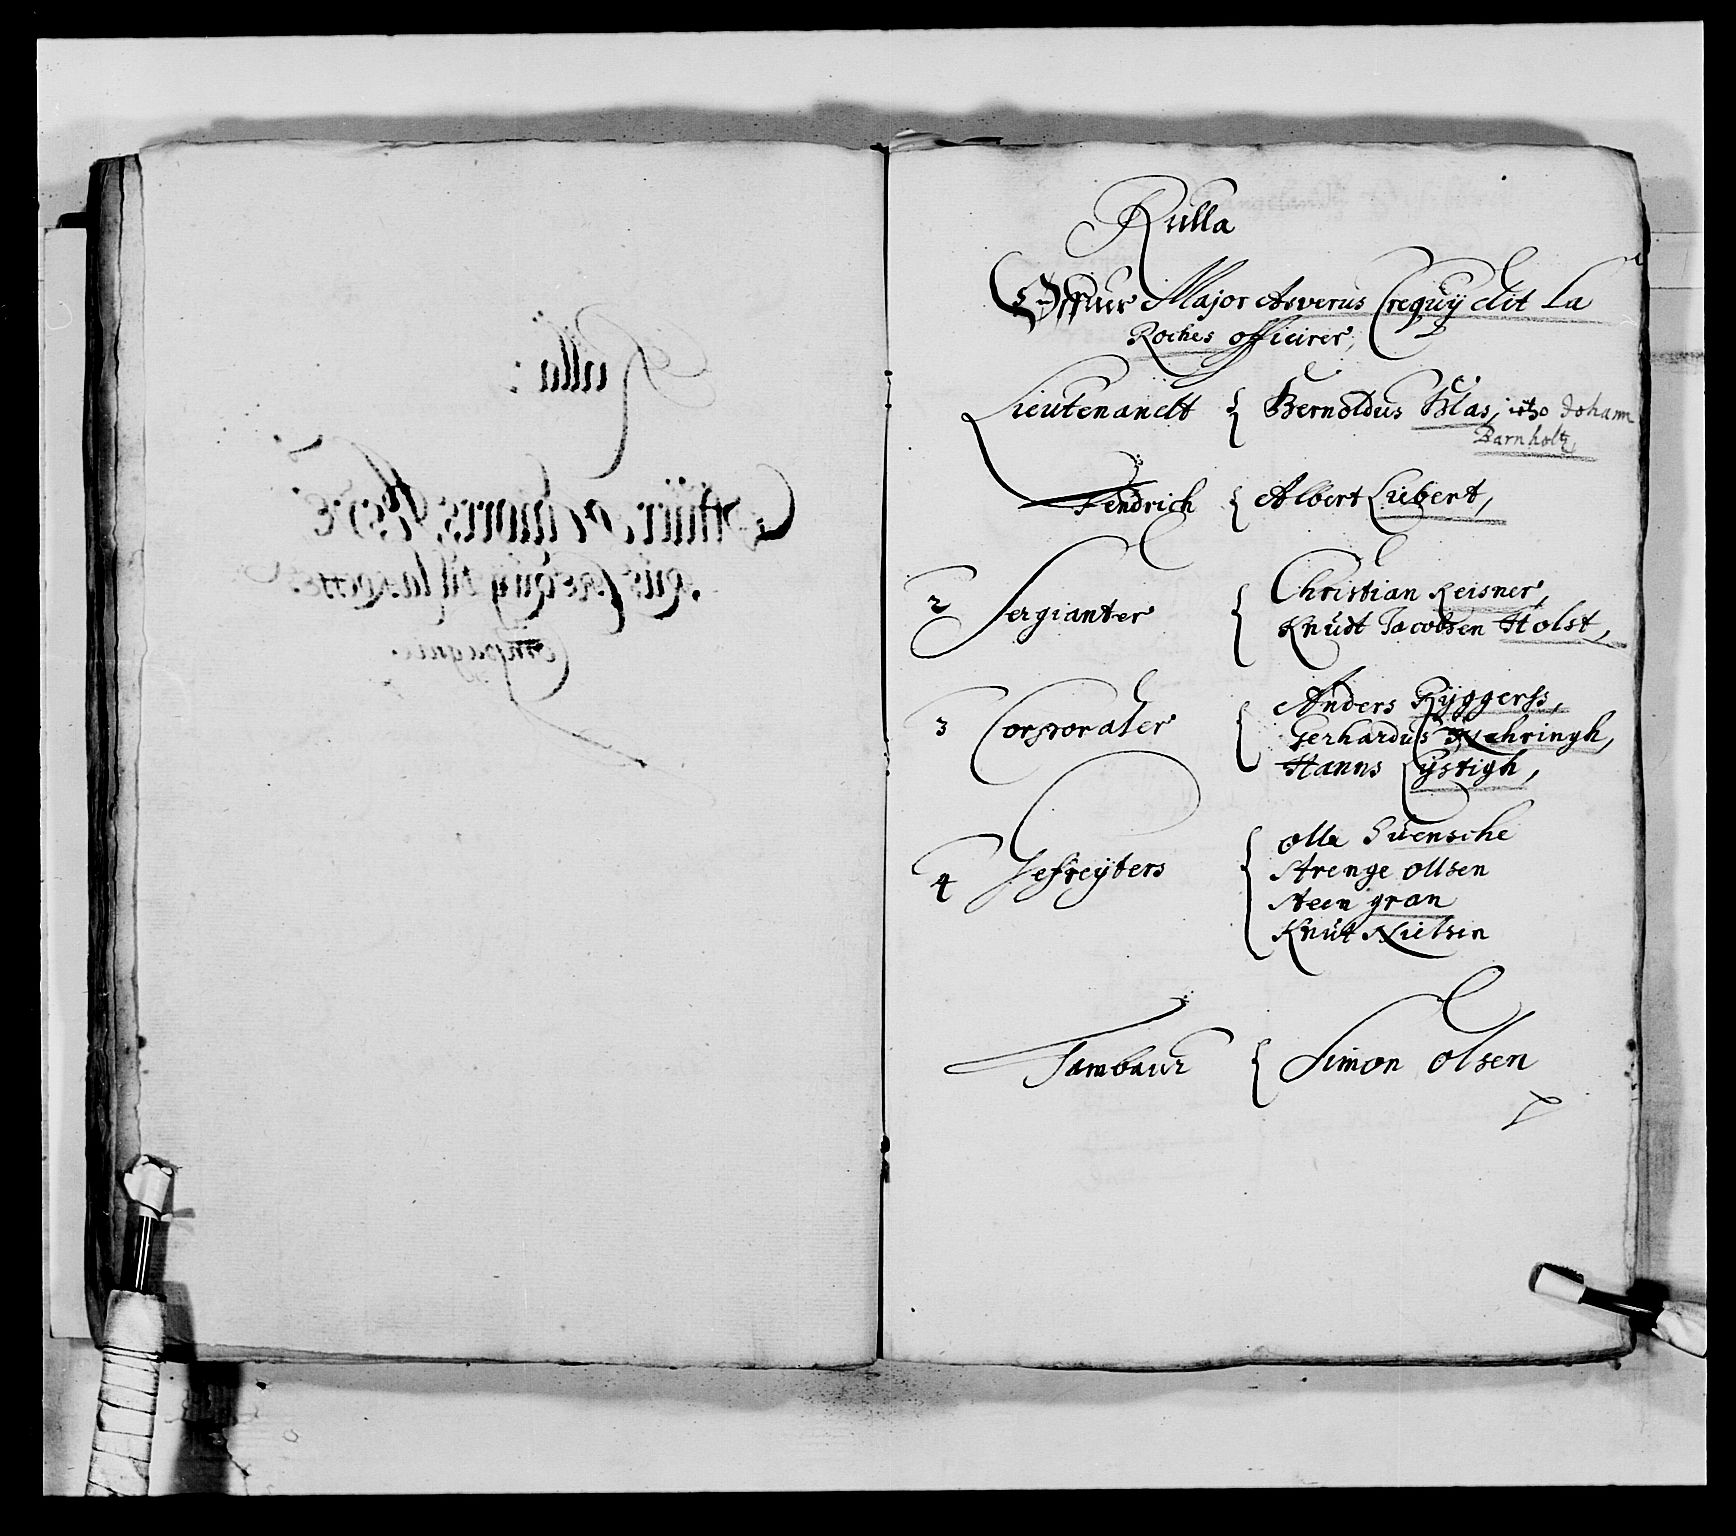 Rulla
Offuer Major Asverus Crequij dit La
Roches officirer,
Lieutenandt { Bernoldus Blas, itzo Johann
Barnholtz
Fendrich { Albert Liebert,
2 Sergianter { Christian Reisner,
Knudt Jacobsen Holst,
3 Corporaler { Anders Ryggerss,
Gerhardus Nehringh,
Hanns Lystigh,
4 Gefreyters { Olle Suensche
Strenge Ollsen
Steen gran
Knut Nielsen
Tambaur { Simon Olsen